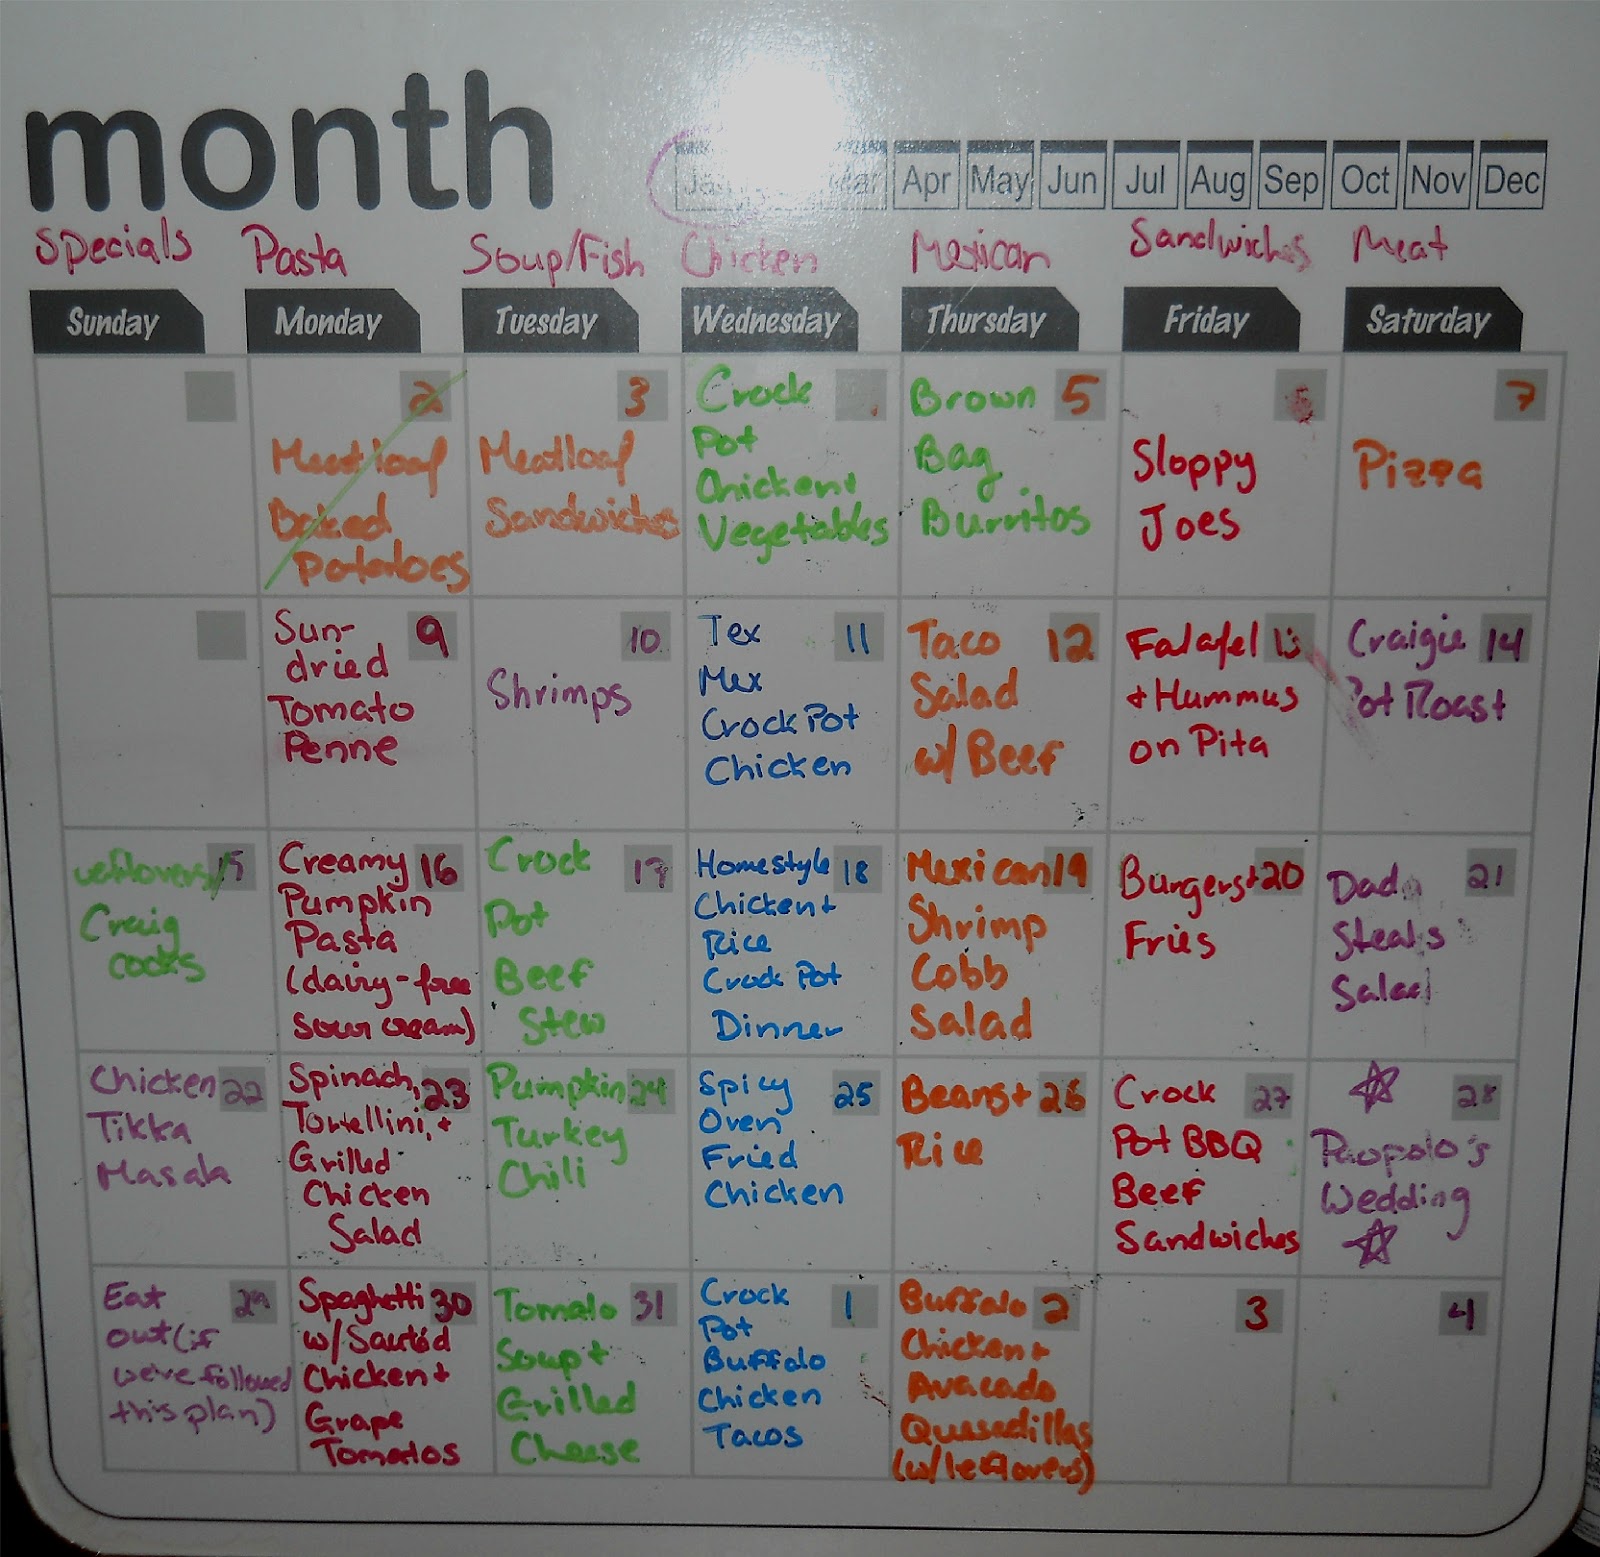 month
Apr May Jun Jul Aug Sep Oct Nov Dec
Specials Pasta Soup/Fish Chicken Mexican Sandwiches Meat
Sunday Monday Tuesday Wednesday Thursday Friday Saturday
2
Meatloaf
Baked
Potatoes
3
Meatloaf
Sandwiches
Crock
Pot
Chicken+
Vegetables
Brown 5
Bag
Burritos
Sloppy
Joes
7
Pizza
Sun- 9
dried
Tomato
Penne
10
Shrimps
Tex 11
Mex
Crock Pot
Chicken
Taco 12
Salad
w/ Beef
Falafel 13
+ Hummus
on Pita
Craigie 14
Pot Roast
15
Craig
cooks
Creamy 16
Pumpkin
Pasta
(dairy-free
sour cream)
Crock 17
Pot
Beef
Stew
Homestyle 18
Chicken+
Rice
Crock Pot
Dinner
Mexican 19
Shrimp
Cobb
Salad
Burgers+ 20
Fries
Dad 21
Steaks
Salad
Chicken 22
Tikka
Masala
Spinach, 23
Tortellini, +
Grilled
Chicken
Salad
Pumpkin 24
Turkey
Chili
Spicy 25
Oven
Fried
Chicken
Beans+ 26
Rice
Crock 27
Pot BBQ
Beef
Sandwiches
28
Wedding
Eat 29
out (if
we've followed
this plan)
Spaghetti 30
w/ Sautéd
Chicken+
Grape
Tomatos
Tomato 31
Soup+
Grilled
Cheese
Crock 1
Pot
Buffalo
Chicken
Tacos
Buffalo 2
Chicken+
Avacado
Quesadillas
(w/leftovers)
3
4